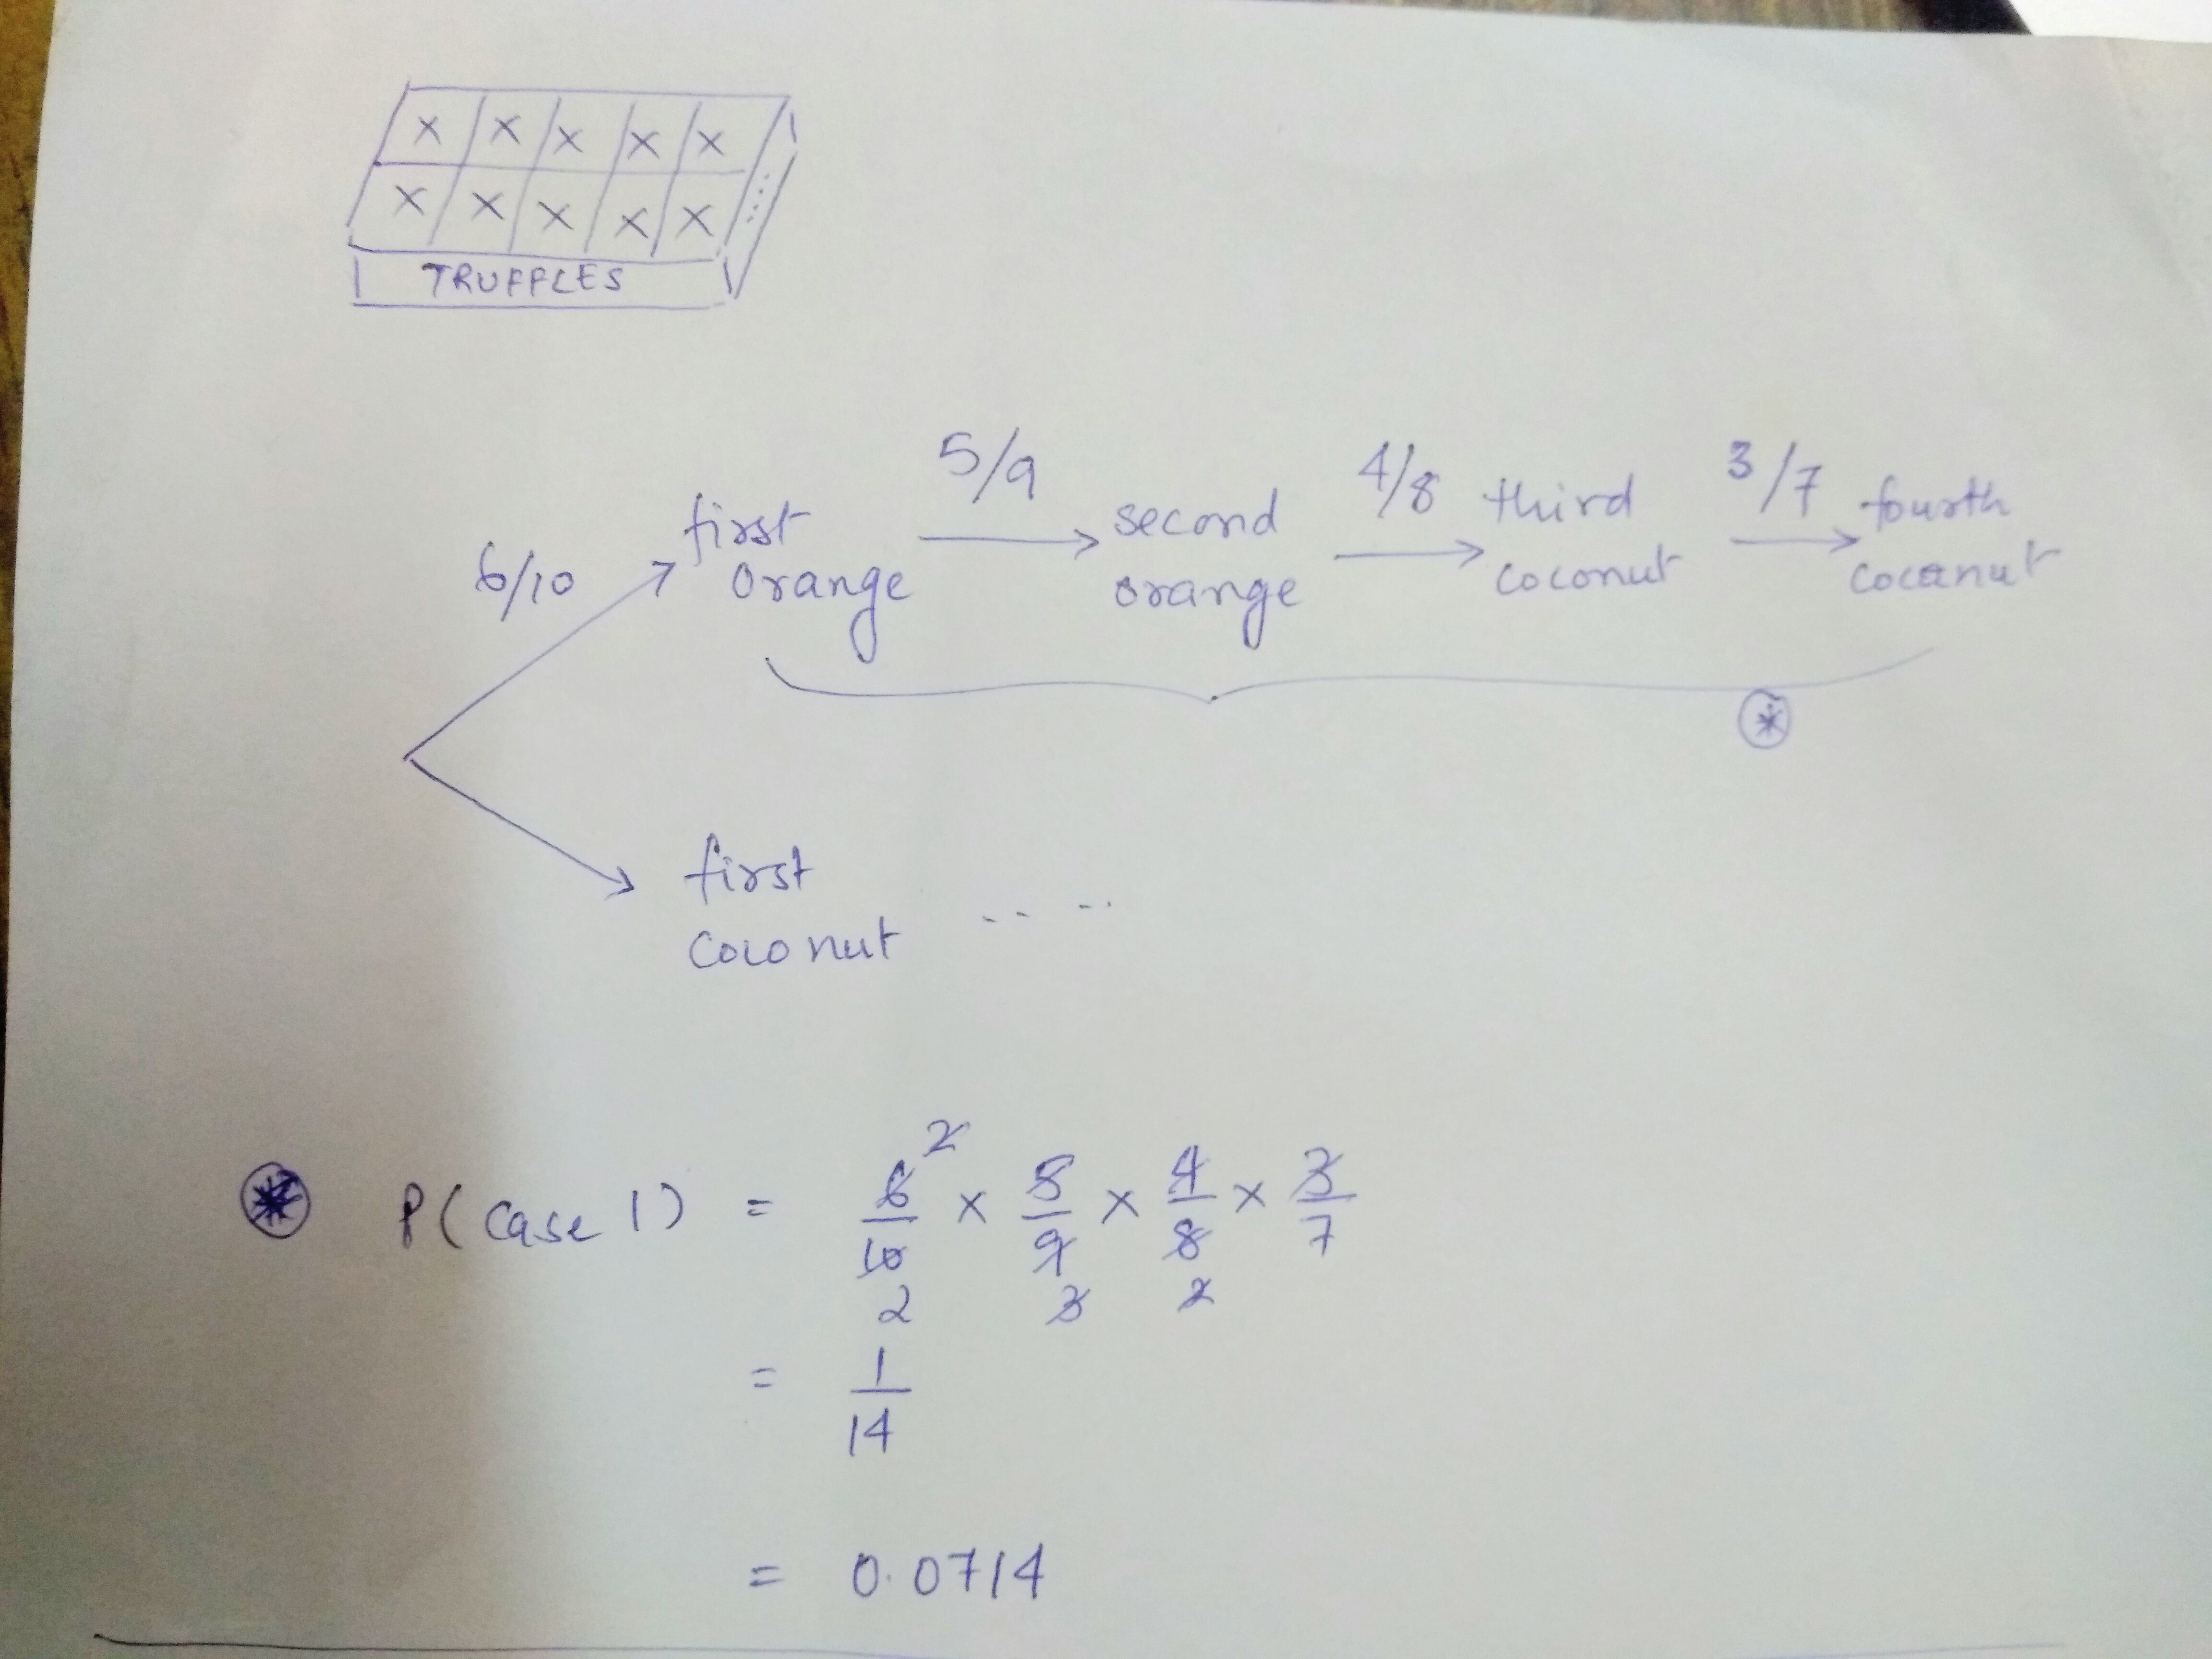 x x x x x
x x x x x
TRUFFLES
6/10 first orange 5/9 second orange 4/8 third coconut 3/7 fourth coconut
*
first
coconut .. ..
* P(case 1) = 6/10 x 5/9 x 4/8 x 3/7
2
2 3 2
= 1/14
= 0.0714